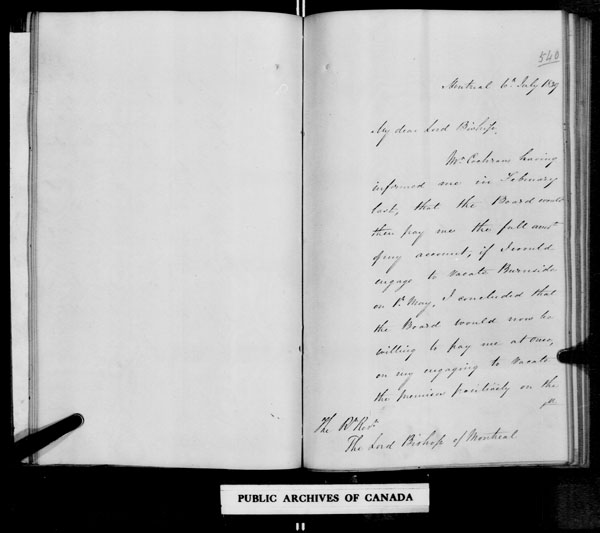 540
Montreal 6th July 1837
My dear Lord Bishop,
Mr Cochran having
informed me in February
last, that the Board would
then pay me the full amot
of my account, if I would
engage to vacate Burnside
on 1t May, I concluded that
the Board would now be
willing to pay me at once,
on my engaging to vacate
the premises positively on the
The Rt Revd
The Lord Bishop of Montreal
PUBLIC ARCHIVES OF CANADA